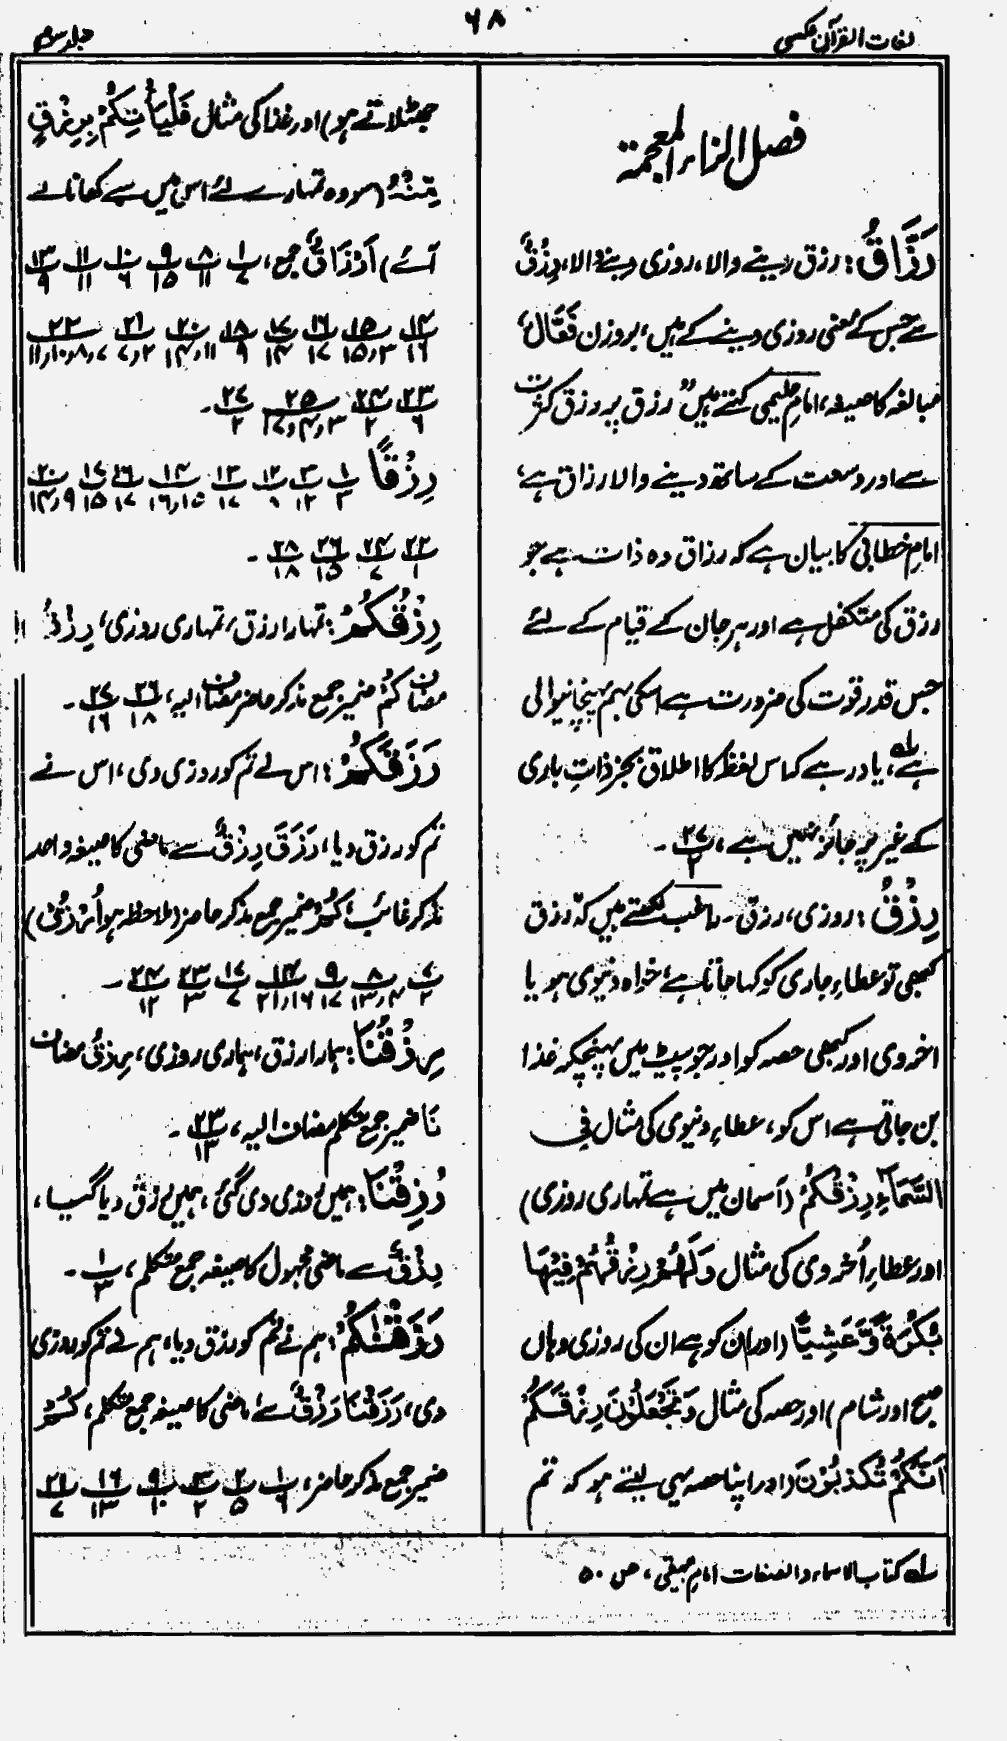 لغات القرآن عکسی
۶۸
جلد سوم
فصل الزاء المعجمۃ
رَزَّاقُ: رزق دینے والا، روزی دینے والا، رِزْقٌ
سے جس کے معنی روزی دینے کے ہیں، بروزن فَعَّالٌ،
مبالغہ کا صیغہ، امام حلیمی کہتے ہیں "رزق پر رزق کثرت
سے اور وسعت کے ساتھ دینے والا رزاق ہے،
امام خطابی کا بیان ہے کہ رزاق وہ ذات ہے جو
رزق کی متکفل ہے اور ہر جان کے قیام کے لئے
جس قدر قوت کی ضرورت ہے اسکی بہم پہنچانیوالی
ہے؂۱، یاد رہے کہ اس لفظ کا اطلاق بجز ذاتِ باری
کے غیر پر جائز نہیں ہے، ۲۷/۲ ۔
رِزْقُ: روزی، رزق ۔ راغب لکھتے ہیں کہ رزق
کبھی تو عطاءِ جاری کو کہا جاتا ہے، خواہ دنیوی ہو یا
اخروی اور کبھی حصہ کو اور جو پیٹ میں پہنچکر غذا
بن جاتی ہے اس کو، عطاءِ دنیوی کی مثال فِی
السَّمَآءِ رِزْقُكُمْ (آسمان میں ہے تمہاری روزی)
اور عطاءِ اُخروی کی مثال وَلَهُمْ رِزْقُهُمْ فِيْهَا
بُكْرَةً وَّعَشِيًّا (اور ان کو ہے ان کی روزی وہاں
صبح اور شام) اور حصہ کی مثال وَتَجْعَلُوْنَ رِزْقَكُمْ
اَنَّكُمْ تُكَذِّبُوْنَ (اور اپنا حصہ یہی لیتے ہو کہ تم
جھٹلاتے ہو) اور غذا کی مثال فَلْيَأْتِكُمْ بِرِزْقٍ
مِّنْهُ (سو وہ تمہارے لئے اس میں سے کھانا لے
آئے) اَرْزَاقٌ جمع، ۱/۷ ۸/۱۱ ۹/۱۵ ۱۰/۶ ۱۱/۱۱ ۱۳/۹
۱۴/۱۶ ۱۵/۳و۱۵ ۱۶/۱۷ ۱۷/۱۴ ۱۸/۹ ۲۰/۱۱و۱۴ ۲۱/۲و۷ ۲۲/۷و۸و۱۰و۱۱
۲۳/۶ ۲۴/۲ ۲۵/۳و۴و۱۷ ۲۷/۲ ۔
رِزْقًا ۱/۳ ۳/۱۲ ۱۲/۱ ۱۳/۱۷ ۱۴/۱۵و۱۶ ۱۶/۱۷ ۱۷/۱۵ ۲۰/۹و۱۴
۲۲/۱ ۲۴/۷ ۲۶/۱۵ ۲۸/۱۸ ۔
رِزْقُكُمْ: تمہارا رزق، تمہاری روزی، رِزْقُ
مضاف كُمْ ضمیر جمع مذکر حاضر مضاف الیہ، ۲۶/۱۸ ۲۷/۱۶ ۔
رَزَقَكُمْ: اس نے تم کو روزی دی، اس نے
تم کو رزق دیا، رَزَقَ رِزْقٌ سے ماضی کا صیغہ واحد
مذکر غائب، كُمْ ضمیر جمع مذکر حاضر (ملاحظہ ہو اُرْزُقْ)
۷/۲ ۸/۴و۱۳ ۹/۱۷ ۱۴/۱۶و۲۱ ۱۷/۷ ۲۳/۳ ۲۴/۱۲ ۔
رِزْقُنَا: ہمارا رزق، ہماری روزی، رِزْقُ مضاف
نَا ضمیر جمع متکلم مضاف الیہ، ۲۳/۱۳ ۔
رُزِقْنَا: ہمیں روزی دی گئی، ہمیں رزق دیا گیا،
رِزْقٌ سے ماضی مجہول کا صیغہ جمع متکلم، ۱/۳ ۔
رَزَقْنٰكُمْ: ہم نے تم کو رزق دیا، ہم نے تم کو روزی
دی، رَزَقْنَا رِزْقٌ سے ماضی کا صیغہ جمع متکلم، كُمْ
ضمیر جمع مذکر حاضر، ۱/۶ ۲/۵ ۳/۲ ۹/۱۰ ۱۶/۱۳ ۲۱/۷
؂۱ کتاب الاسماء والصفات امام بیہقی، ص ۵۰